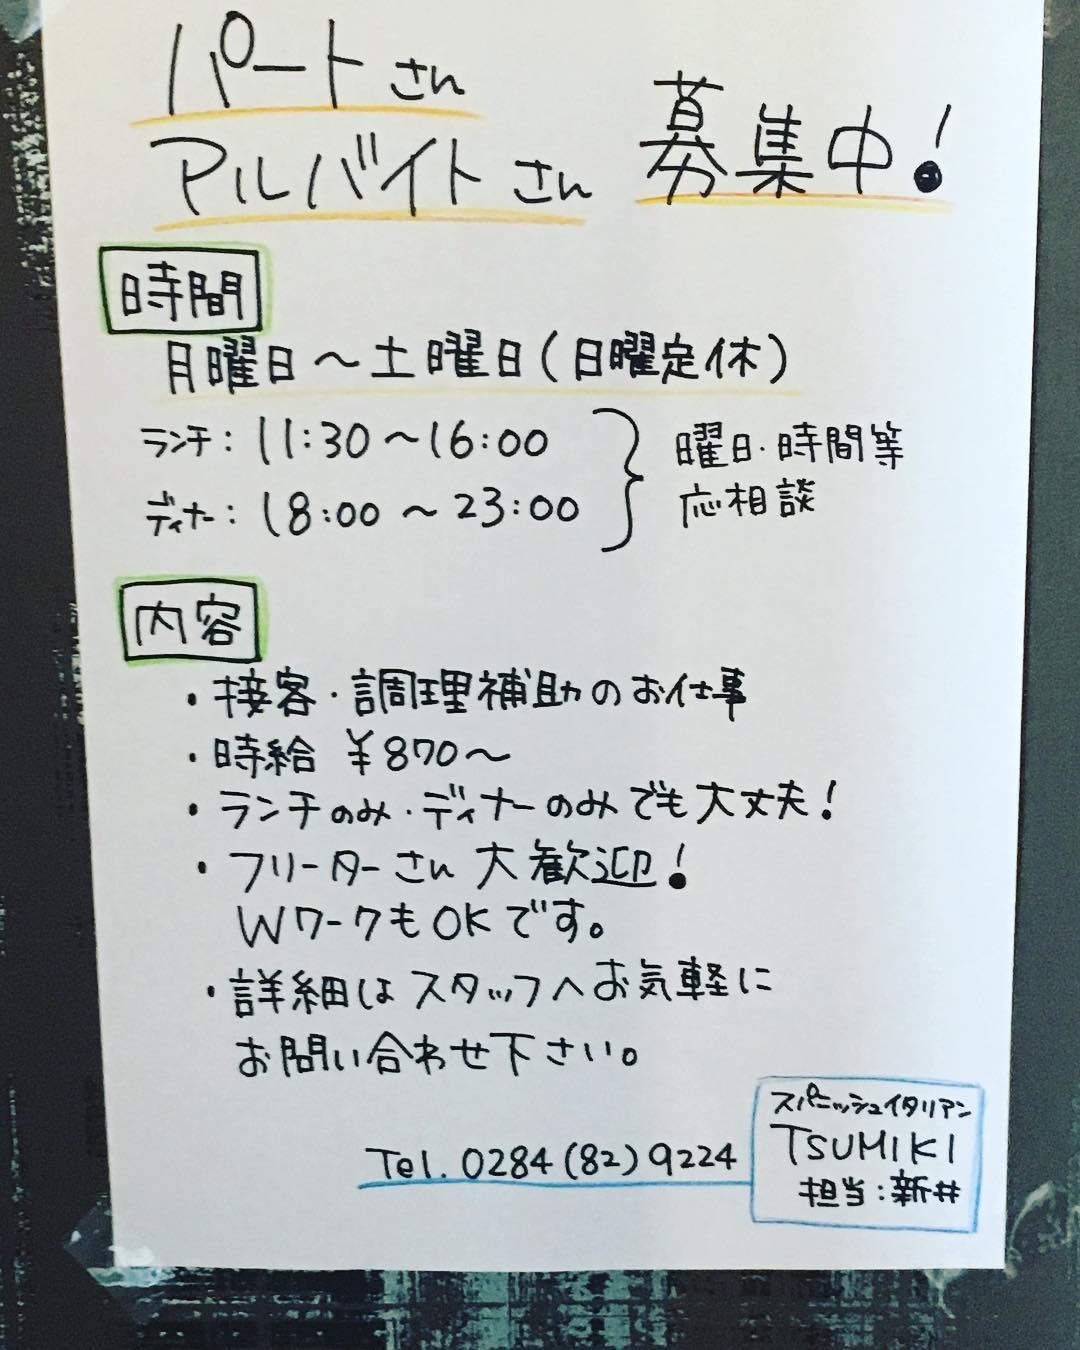 パートさん
アルバイトさん 募集中!
時間
月曜日～土曜日(日曜定休)
ランチ: 11:30～16:00
ディナー: 18:00～23:00
曜日・時間等
応相談
内容
・接客・調理補助のお仕事
・時給 ¥870～
・ランチのみ・ディナーのみでも大丈夫!
・フリーターさん 大歓迎!
WワークもOKです。
・詳細はスタッフへお気軽に
お問い合わせ下さい。
Tel. 0284(82)9224
スパニッシュイタリアン
TSUMIKI
担当:新井